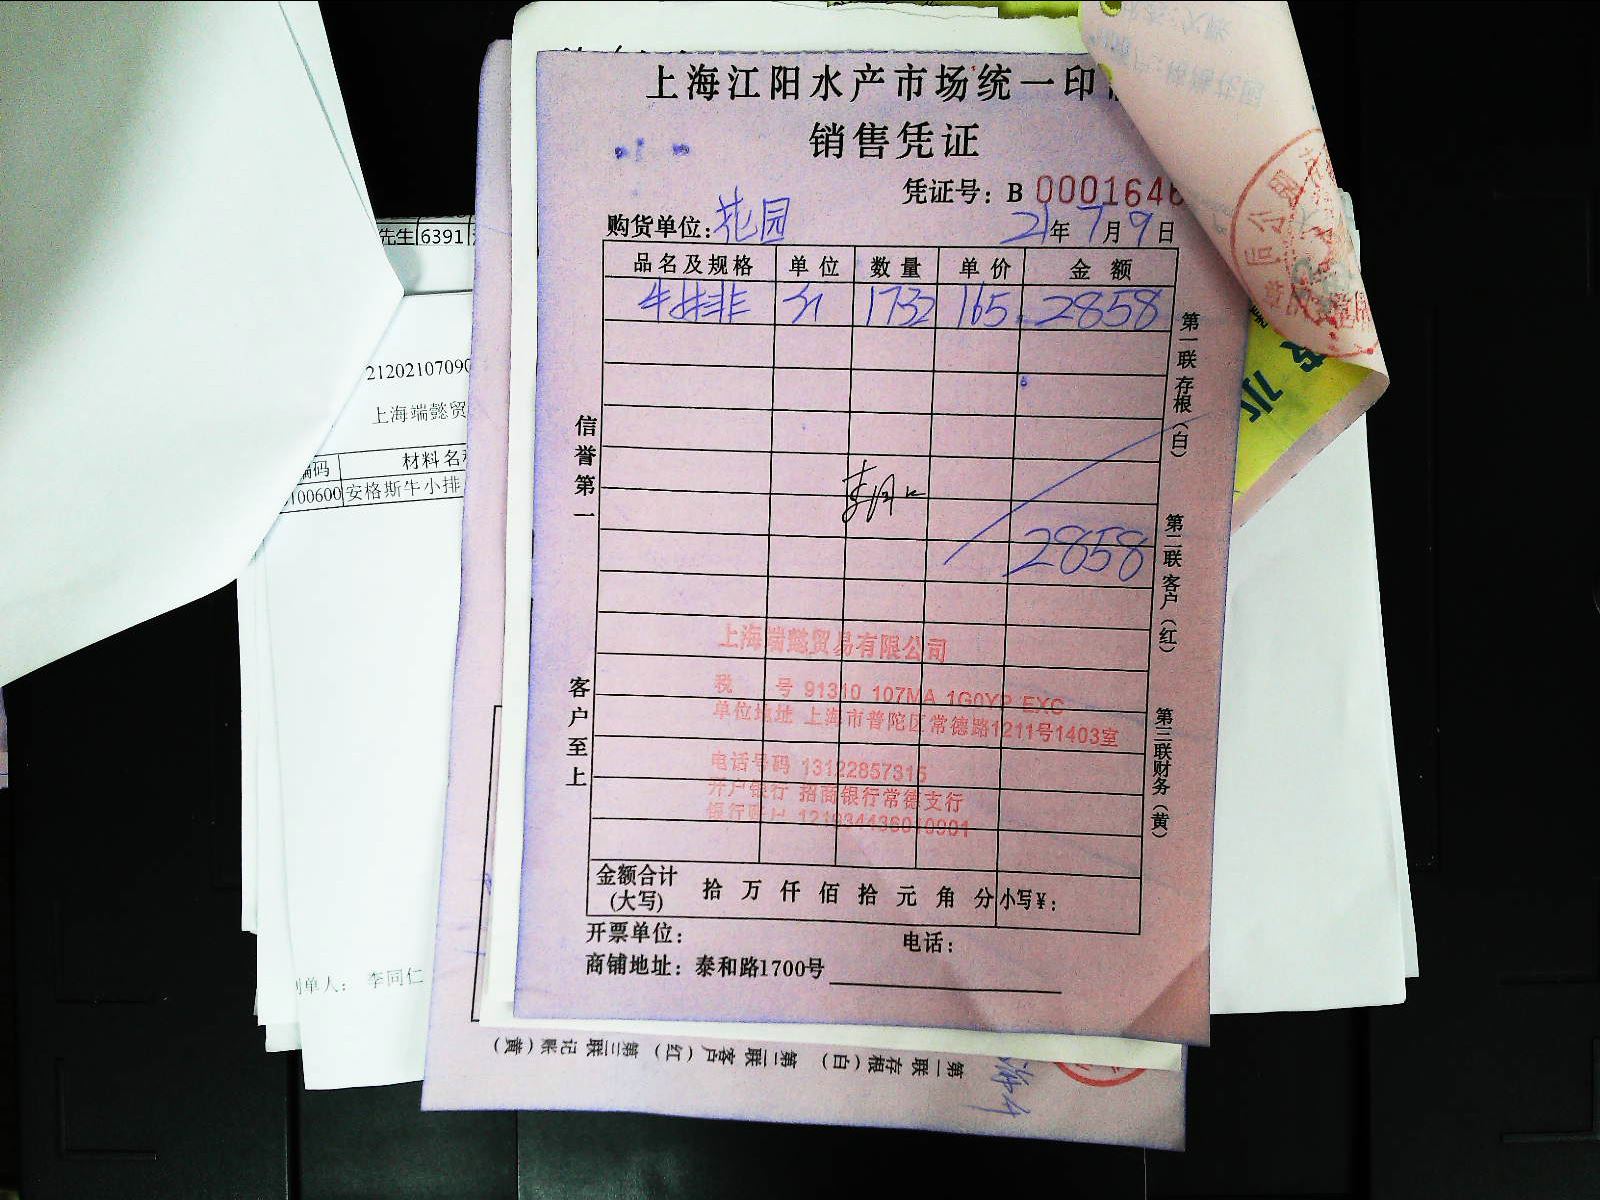 上海江阳水产市场统一印
销售凭证
凭证号：B 0001646
购货单位：花园 21年7月9日
品名及规格 单位 数量 单价 金额
牛排 斤 1732 165 2858
2858
信誉第一
客户至上
第一联存根（白）
第二联客户（红）
第三联财务（黄）
上海端懿贸易有限公司
税 号 91310 107MA 1G0YP EXC
单位地址 上海市普陀区常德路1211号1403室
电话号码 13122857315
开户银行 招商银行常德支行
银行账户
金额合计（大写） 拾 万 仟 佰 拾 元 角 分 小写¥：
开票单位： 电话：
商铺地址：泰和路1700号
先生 6391
21202107090
上海端懿贸
编码 材料名
100600 安格斯牛小排
制单人： 李同仁
第一联存根（白） 第二联客户（红） 第三联记账（黄）